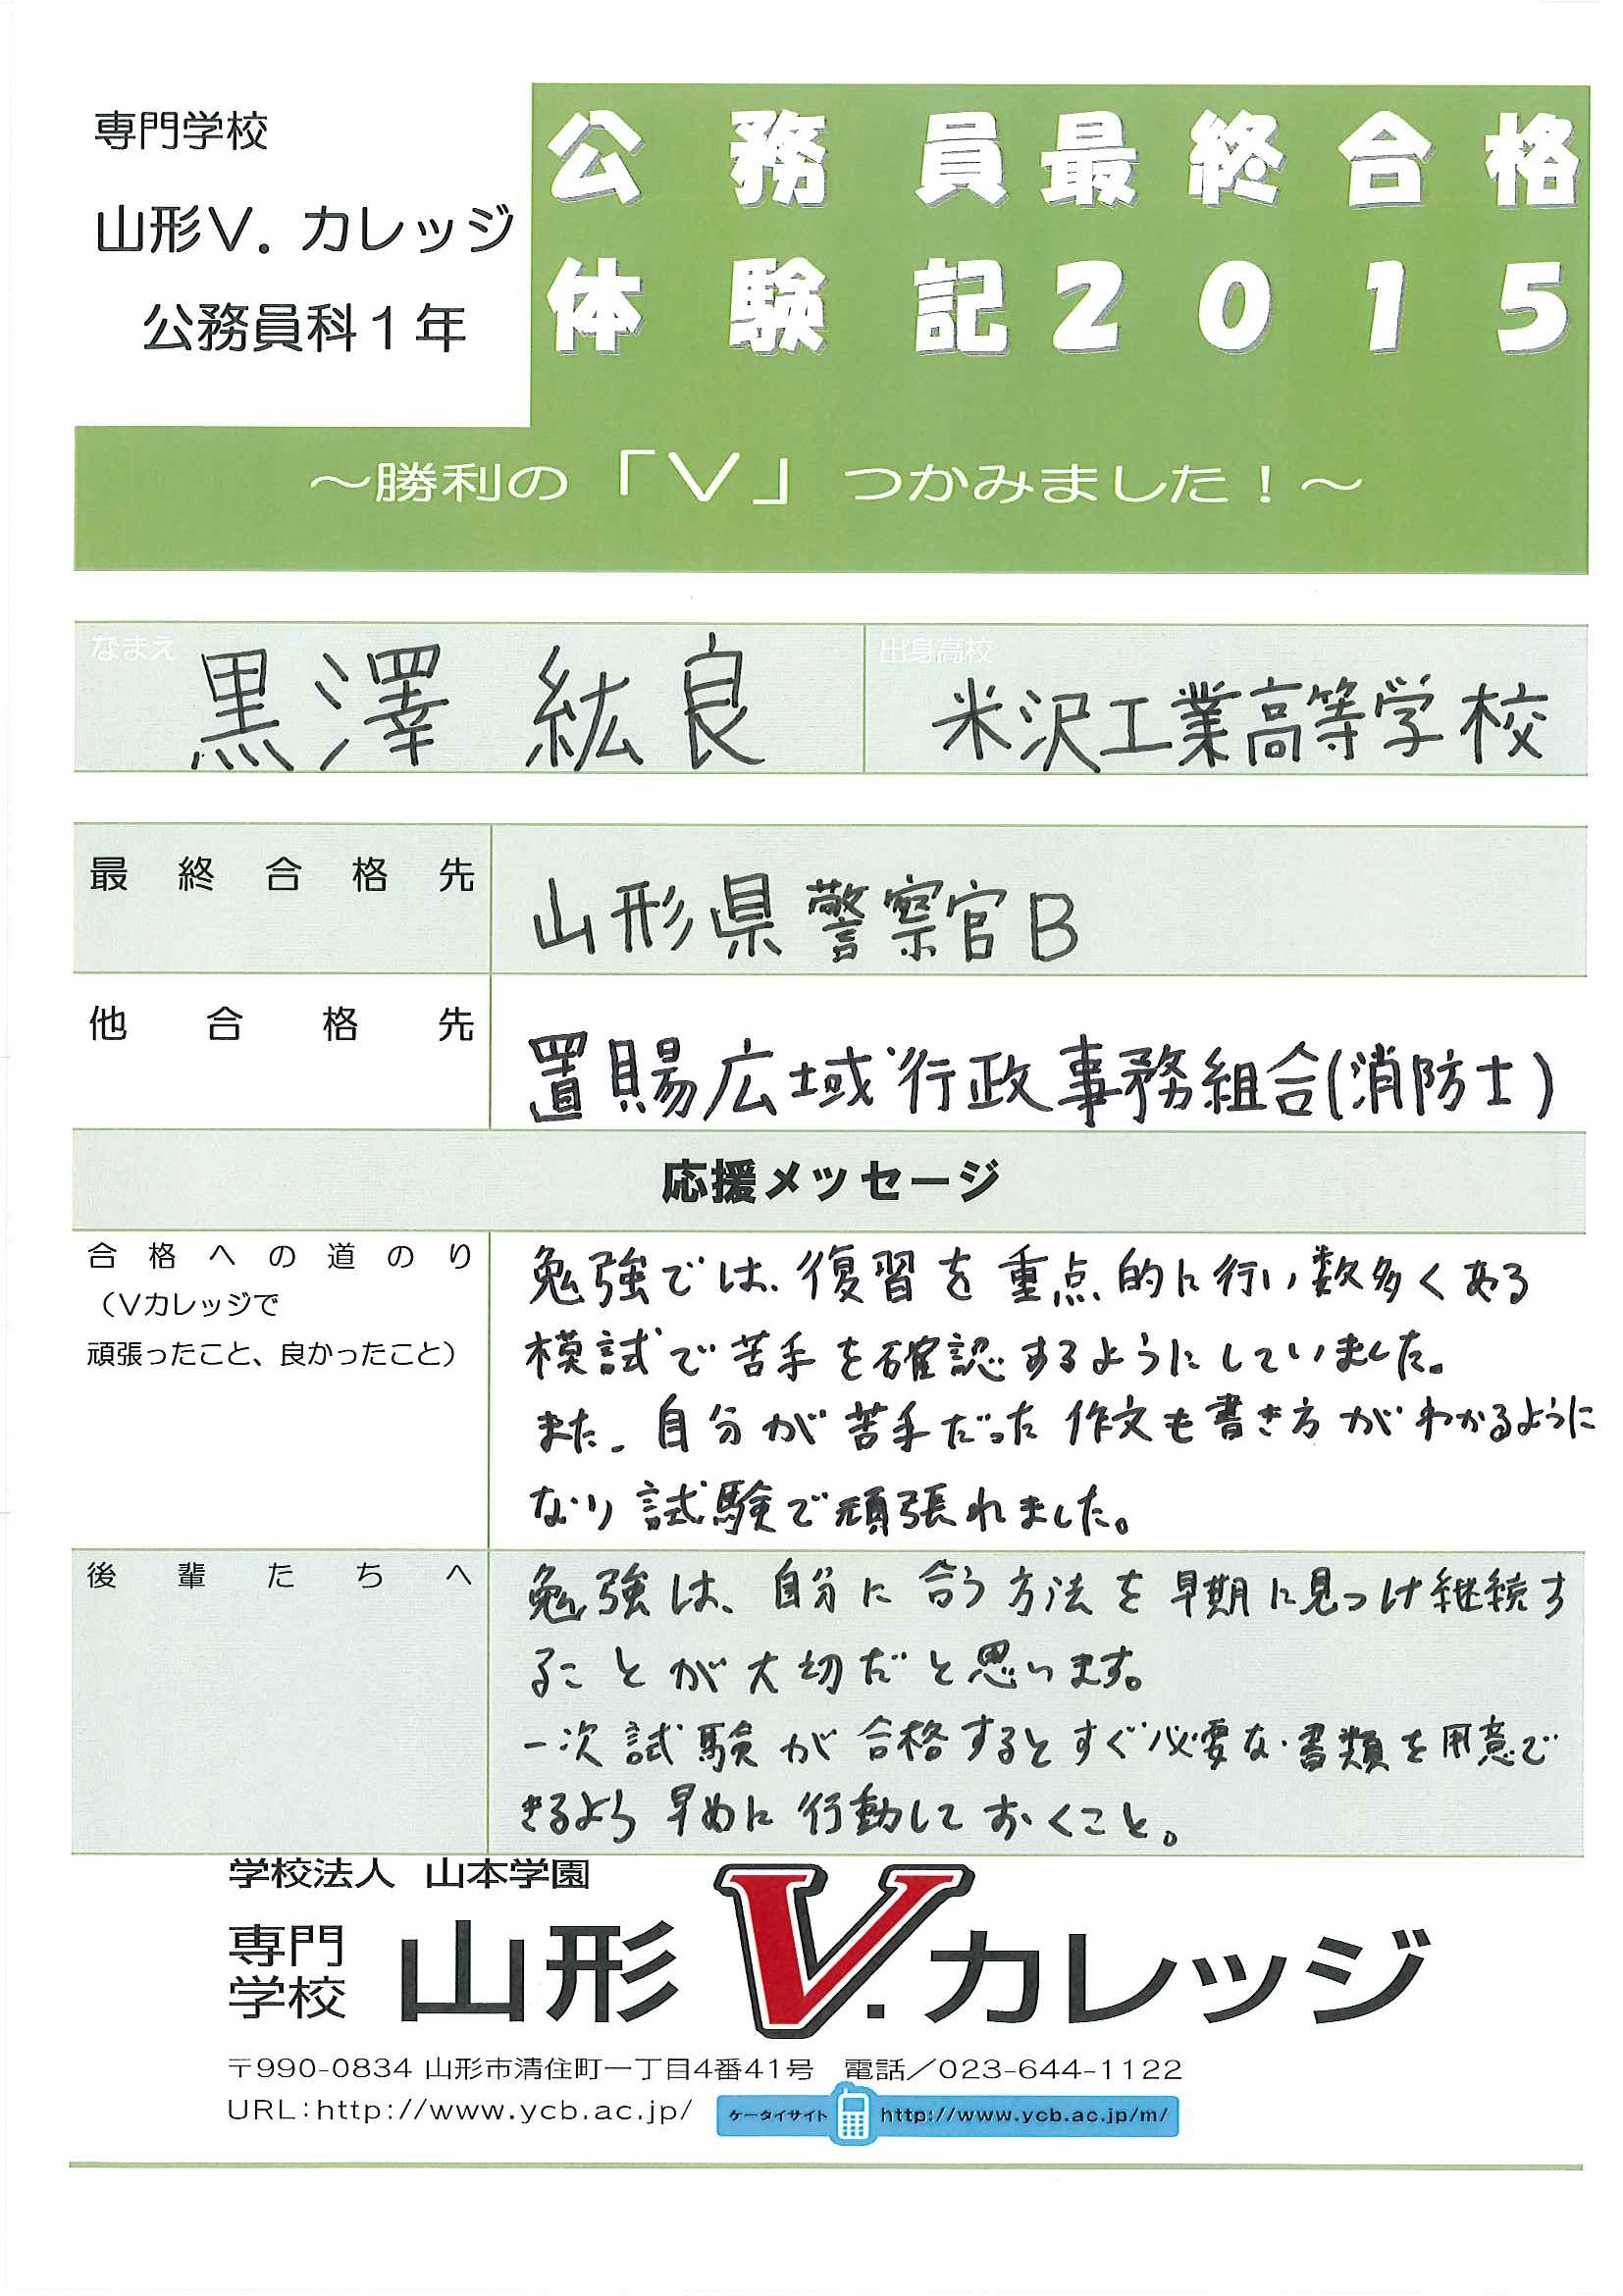 専門学校
山形V.カレッジ
公務員科1年
公務員最終合格
体験記2015
～勝利の「V」つかみました！～
なまえ
黒澤 紘良
出身高校
米沢工業高等学校
最終合格先
山形県警察官B
他合格先
置賜広域行政事務組合(消防士)
応援メッセージ
合格への道のり
（Vカレッジで
頑張ったこと、良かったこと）
勉強では、復習を重点的に行い数多くある
模試で苦手を確認するようにしていました。
また、自分が苦手だった作文も書き方がわかるように
なり試験で頑張れました。
後輩たちへ
勉強は、自分に合う方法を早期に見つけ継続す
ることが大切だと思います。
一次試験が合格するとすぐ必要な書類を用意で
きるよう早めに行動しておくこと。
学校法人 山本学園
専門
学校
山形V.カレッジ
〒990-0834 山形市清住町一丁目4番41号 電話／023-644-1122
URL:http://www.ycb.ac.jp/
ケータイサイト http://www.ycb.ac.jp/m/